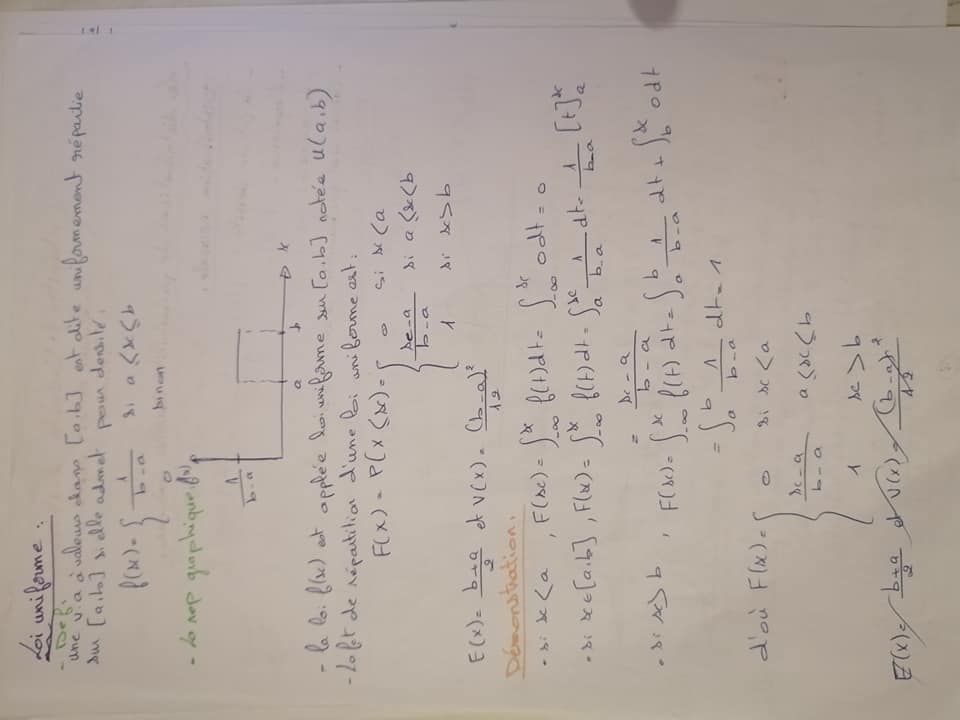 - 2 -
Loi uniforme :
- Def :
une v.a à valeurs dans [a,b] est dite uniformement répartie
sur [a,b] si elle admet pour densité.
f(x) = { 1/(b-a) si a ≤ x ≤ b
0 sinon
- La rep graphique
f(x)
1/(b-a)
a b x
- la loi f(x) est applée loi uniforme sur [a,b] notée U(a,b)
- la fct de répartition d'une loi uniforme est :
F(x) = P(X ≤ x) = { 0 si x < a
(x-a)/(b-a) si a ≤ x ≤ b
1 si x > b
E(x) = (b+a)/2 et V(x) = (b-a)²/12
Démonstration.
• si x < a , F(x) = ∫_{-∞}^{x} f(t)dt = ∫_{-∞}^{x} 0dt = 0
• si x ∈ [a,b] , F(x) = ∫_{-∞}^{x} f(t)dt = ∫_{a}^{x} 1/(b-a) dt = 1/(b-a) [t]_{a}^{x}
= (x-a)/(b-a)
• si x > b , F(x) = ∫_{-∞}^{x} f(t)dt = ∫_{a}^{b} 1/(b-a) dt + ∫_{b}^{x} 0dt
= ∫_{a}^{b} 1/(b-a) dt = 1
d'où F(x) = { 0 si x < a
(x-a)/(b-a) a ≤ x ≤ b
1 x > b
E(x) = (b+a)/2 et V(x) = (b-a)²/12